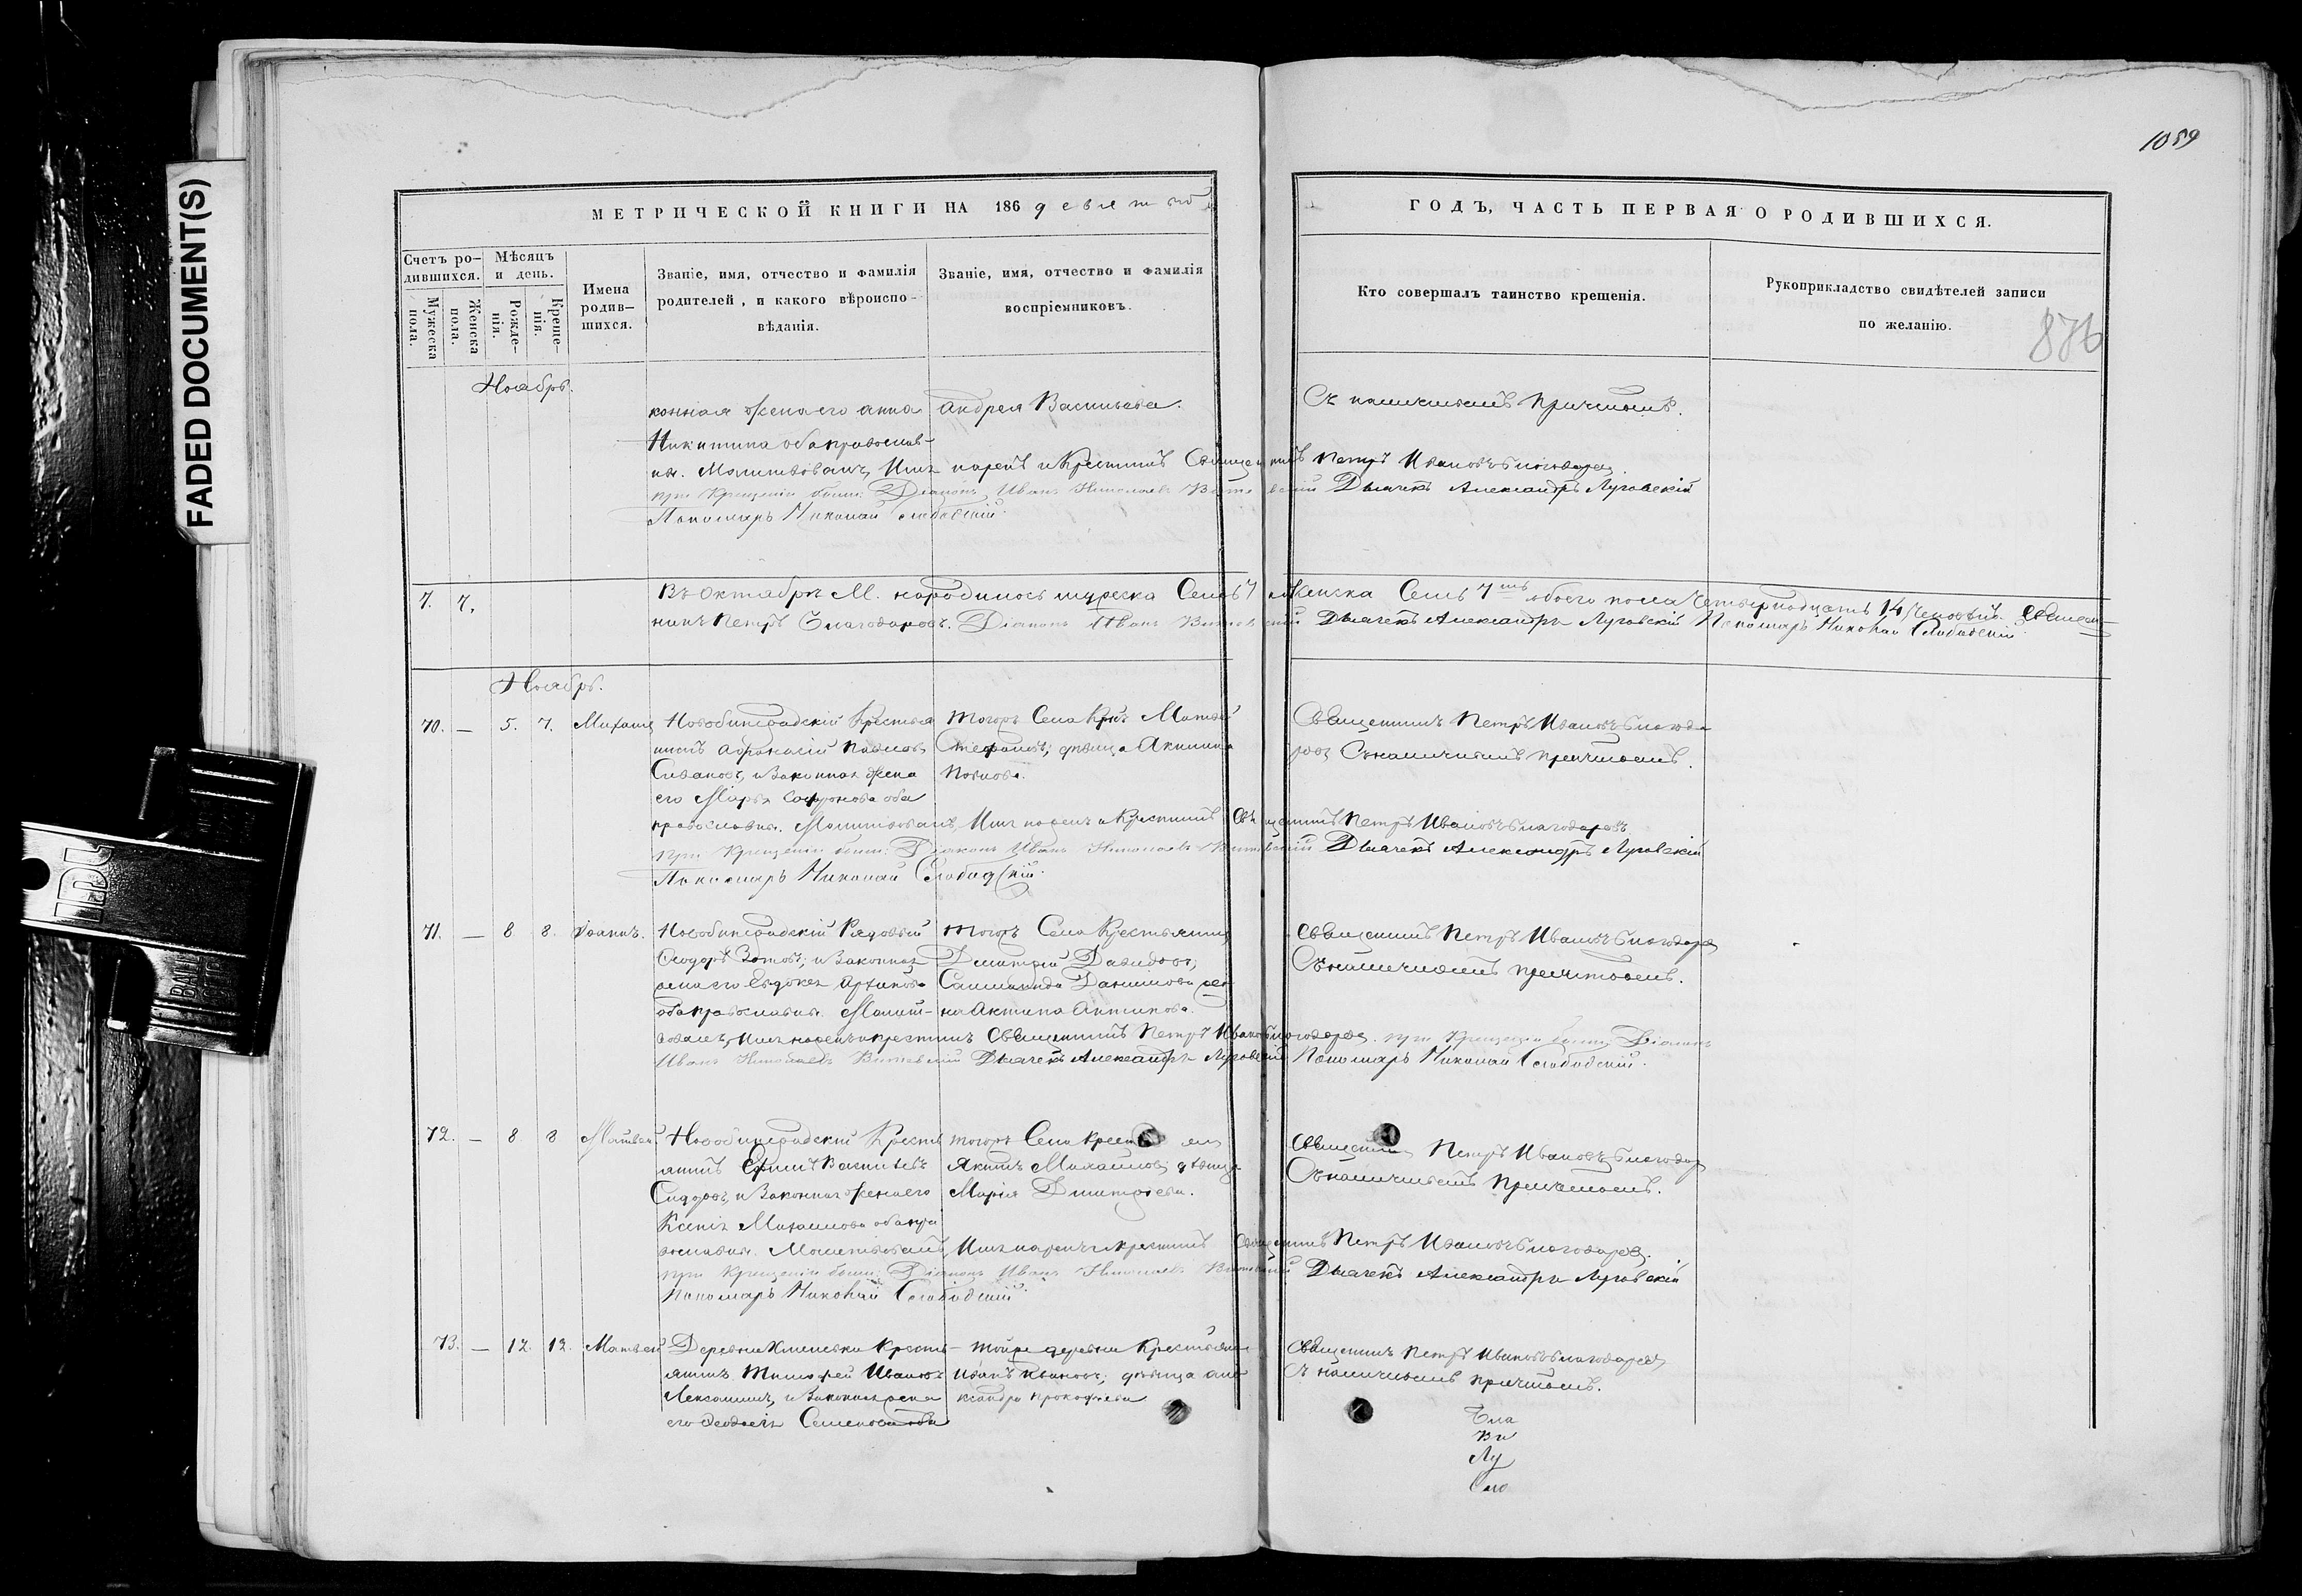 FADED DOCUMENT(S)
1059
МЕТРИЧЕСКОЙ КНИГИ НА 186 девятый
ГОДЪ, ЧАСТЬ ПЕРВАЯ О РОДИВШИХСЯ.
Счетъ родившихся.
Мужеска пола.
Женска пола.
Мѣсяцъ и день.
Рожденія.
Крещенія.
Имена родившихся.
Званіе, имя, отчество и фамилія родителей, и какого вѣроисповѣданія.
Званіе, имя, отчество и фамилія воспріемниковъ.
Кто совершалъ таинство крещенія.
Рукоприкладство свидѣтелей записи по желанію.
876
Ноябрь.
конная жена его Анна
Никитина оба православ-
ны. Молитвовалъ, Имя нарекъ и Крестилъ Священникъ Петръ Ивановъ Благодаров
при Крещеніи были: Діаконъ Иванъ Николаевъ Дьячекъ Александръ Луговскій
Пономарь Николай Слободскій.
Андрея Васильева.
Съ наличнымъ Причтомъ.
7. 7. Въ Октябрѣ М. народилось мужеска Семь 7 Женска Семь 7 обоего пола четырнадцать 14 человѣкъ. Священ-
никъ Петръ Благодаровъ. Діаконъ Иванъ Дьячекъ Александръ Луговскій Пономарь Николай Слободскій
Ноябрь.
70. — 5. 7. Михаилъ
Новобинарадскій Крестья
нинъ Афанасій Павловъ
Сивановъ, и Законная Жена
его Марья Софронова оба
православны. Молитвовалъ, Имя нарекъ и Крестилъ Священникъ Петръ Ивановъ Благодаровъ
при Крещеніи были: Діаконъ Иванъ Николаевъ Дьячекъ Александръ Луговскій
Пономарь Николай Слободскій.
тогожъ Села Матвей
Стефановъ; дѣвица Акилина
Павлова.
Священникъ Петръ Ивановъ Благода
ровъ Съ наличнымъ причтомъ.
71. — 8 8. Іоаннъ.
Новобинарадскій Рядовый
Ѳеодоръ Зотовъ; и Законная
жена его Евдокія Архипова
оба православны. Молит-
вовалъ, Имя нарекъ и крестилъ Священникъ Петръ Ивановъ Благодаров. при Крещеніи были: Діаконъ
Иванъ Николаевъ Дьячекъ Александръ Луговскій Пономарь Николай Слободскій.
тогожъ Села Крестьянинъ
Дмитрій Давидовъ;
Данилова
Антипова.
Священникъ Петръ Ивановъ Благодаров
Съ наличнымъ причтомъ.
72. — 8 8 Матвей.
Новобинарадскій Кресть
янинъ Ефимъ Васильевъ
Сидоровъ, и Законная Жена его
Ксенія Михаилова оба пра
вославны. Молитвовалъ, Имя нарекъ и крестилъ Священникъ Петръ Ивановъ Благодаров.
при Крещеніи были: Діаконъ Иванъ Николаевъ Дьячекъ Александръ Луговскій
Пономарь Николай Слободскій.
тогожъ Села
Якимъ Михайловъ; дѣвица
Марія Дмитріева.
Священникъ Петръ Ивановъ Благодар
Съ наличнымъ Причтомъ.
73. — 12. 12. Матвей
Деревни Кресть-
янинъ Тимофей Ивановъ
и Законная жена
его Ѳеодосія Семенова оба
тойже деревни Крестьянинъ
Иванъ Ивановъ; дѣвица Але
ксандра Прокофьева
Священникъ Петръ Ивановъ Благодаровъ
Съ наличнымъ причтомъ.
Бла
Ви
Лу
Сло